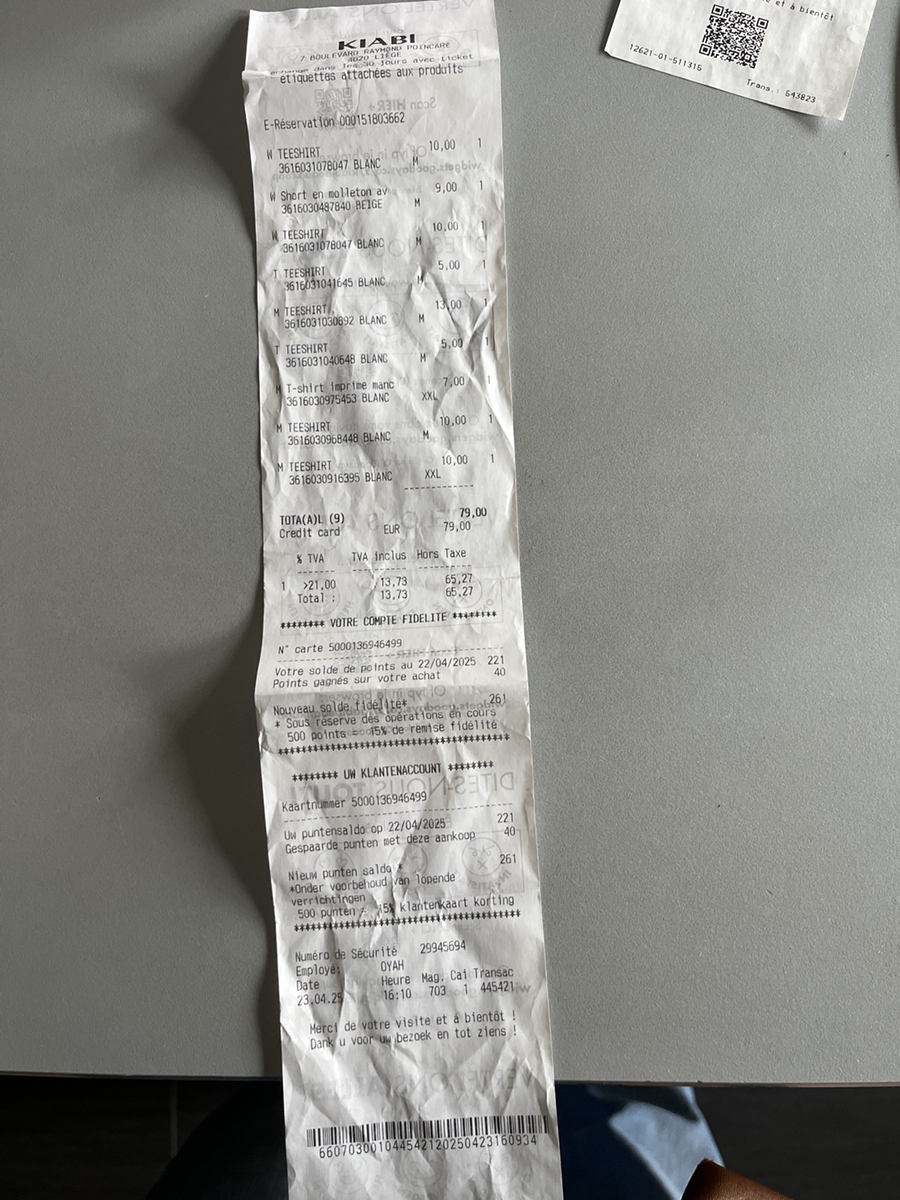 KIABI
7 BOULEVARD RAYMOND POINCARE
4020 LIEGE
échange dans les 30 jours avec ticket
étiquettes attachées aux produits
E-Réservation 000151803662
W TEESHIRT 10,00 1
3616031078047 BLANC M
W Short en molleton av 9,00 1
3616030487840 BEIGE M
W TEESHIRT 10,00 1
3616031078047 BLANC M
T TEESHIRT 5,00 1
3616031041645 BLANC M
M TEESHIRT 13,00 1
3616031030892 BLANC M
T TEESHIRT 5,00 1
3616031040648 BLANC M
M T-shirt imprime manc 7,00 1
3616030975453 BLANC XXL
M TEESHIRT 10,00 1
3616030968448 BLANC M
M TEESHIRT 10,00 1
3616030916395 BLANC XXL
TOTA(A)L (9) 79,00
Credit card EUR 79,00
% TVA TVA inclus Hors Taxe
1 >21,00 13,73 65,27
Total : 13,73 65,27
******** VOTRE COMPTE FIDELITE ********
N° carte 5000136946499
Votre solde de points au 22/04/2025 221
Points gagnés sur votre achat 40
Nouveau solde fidélité* 261
* Sous réserve des opérations en cours
500 points = 15% de remise fidélité
******** UW KLANTENACCOUNT ********
Kaartnummer 5000136946499
Uw puntensaldo op 22/04/2025 221
Gespaarde punten met deze aankoop 40
Nieuw punten saldo * 261
*Onder voorbehoud van lopende
verrichtingen
500 punten = 15% klantenkaart korting
Numéro de Sécurité 29945694
Employé: OYAH
Date Heure Mag. Cai Transac
23.04.25 16:10 703 1 445421
Merci de votre visite et à bientôt !
Dank u voor uw bezoek en tot ziens !
660703001044542120250423160934
et à bientôt
12621-01-511315
Trans.: 543823